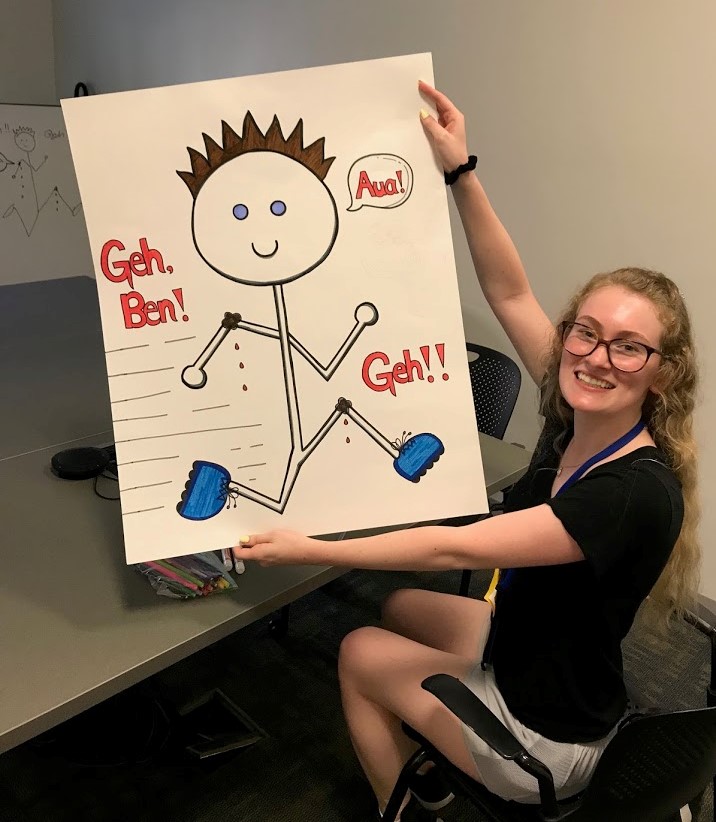 Aua!
Geh,
Ben!
Geh!!